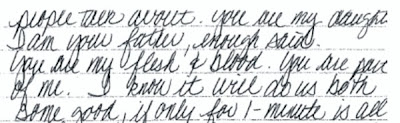 people talk about. You are my daughte
I am your father, enough said.
You are my flesh & blood. You are part
of me. I know it will do us both
some good, if only for 1-minute is all